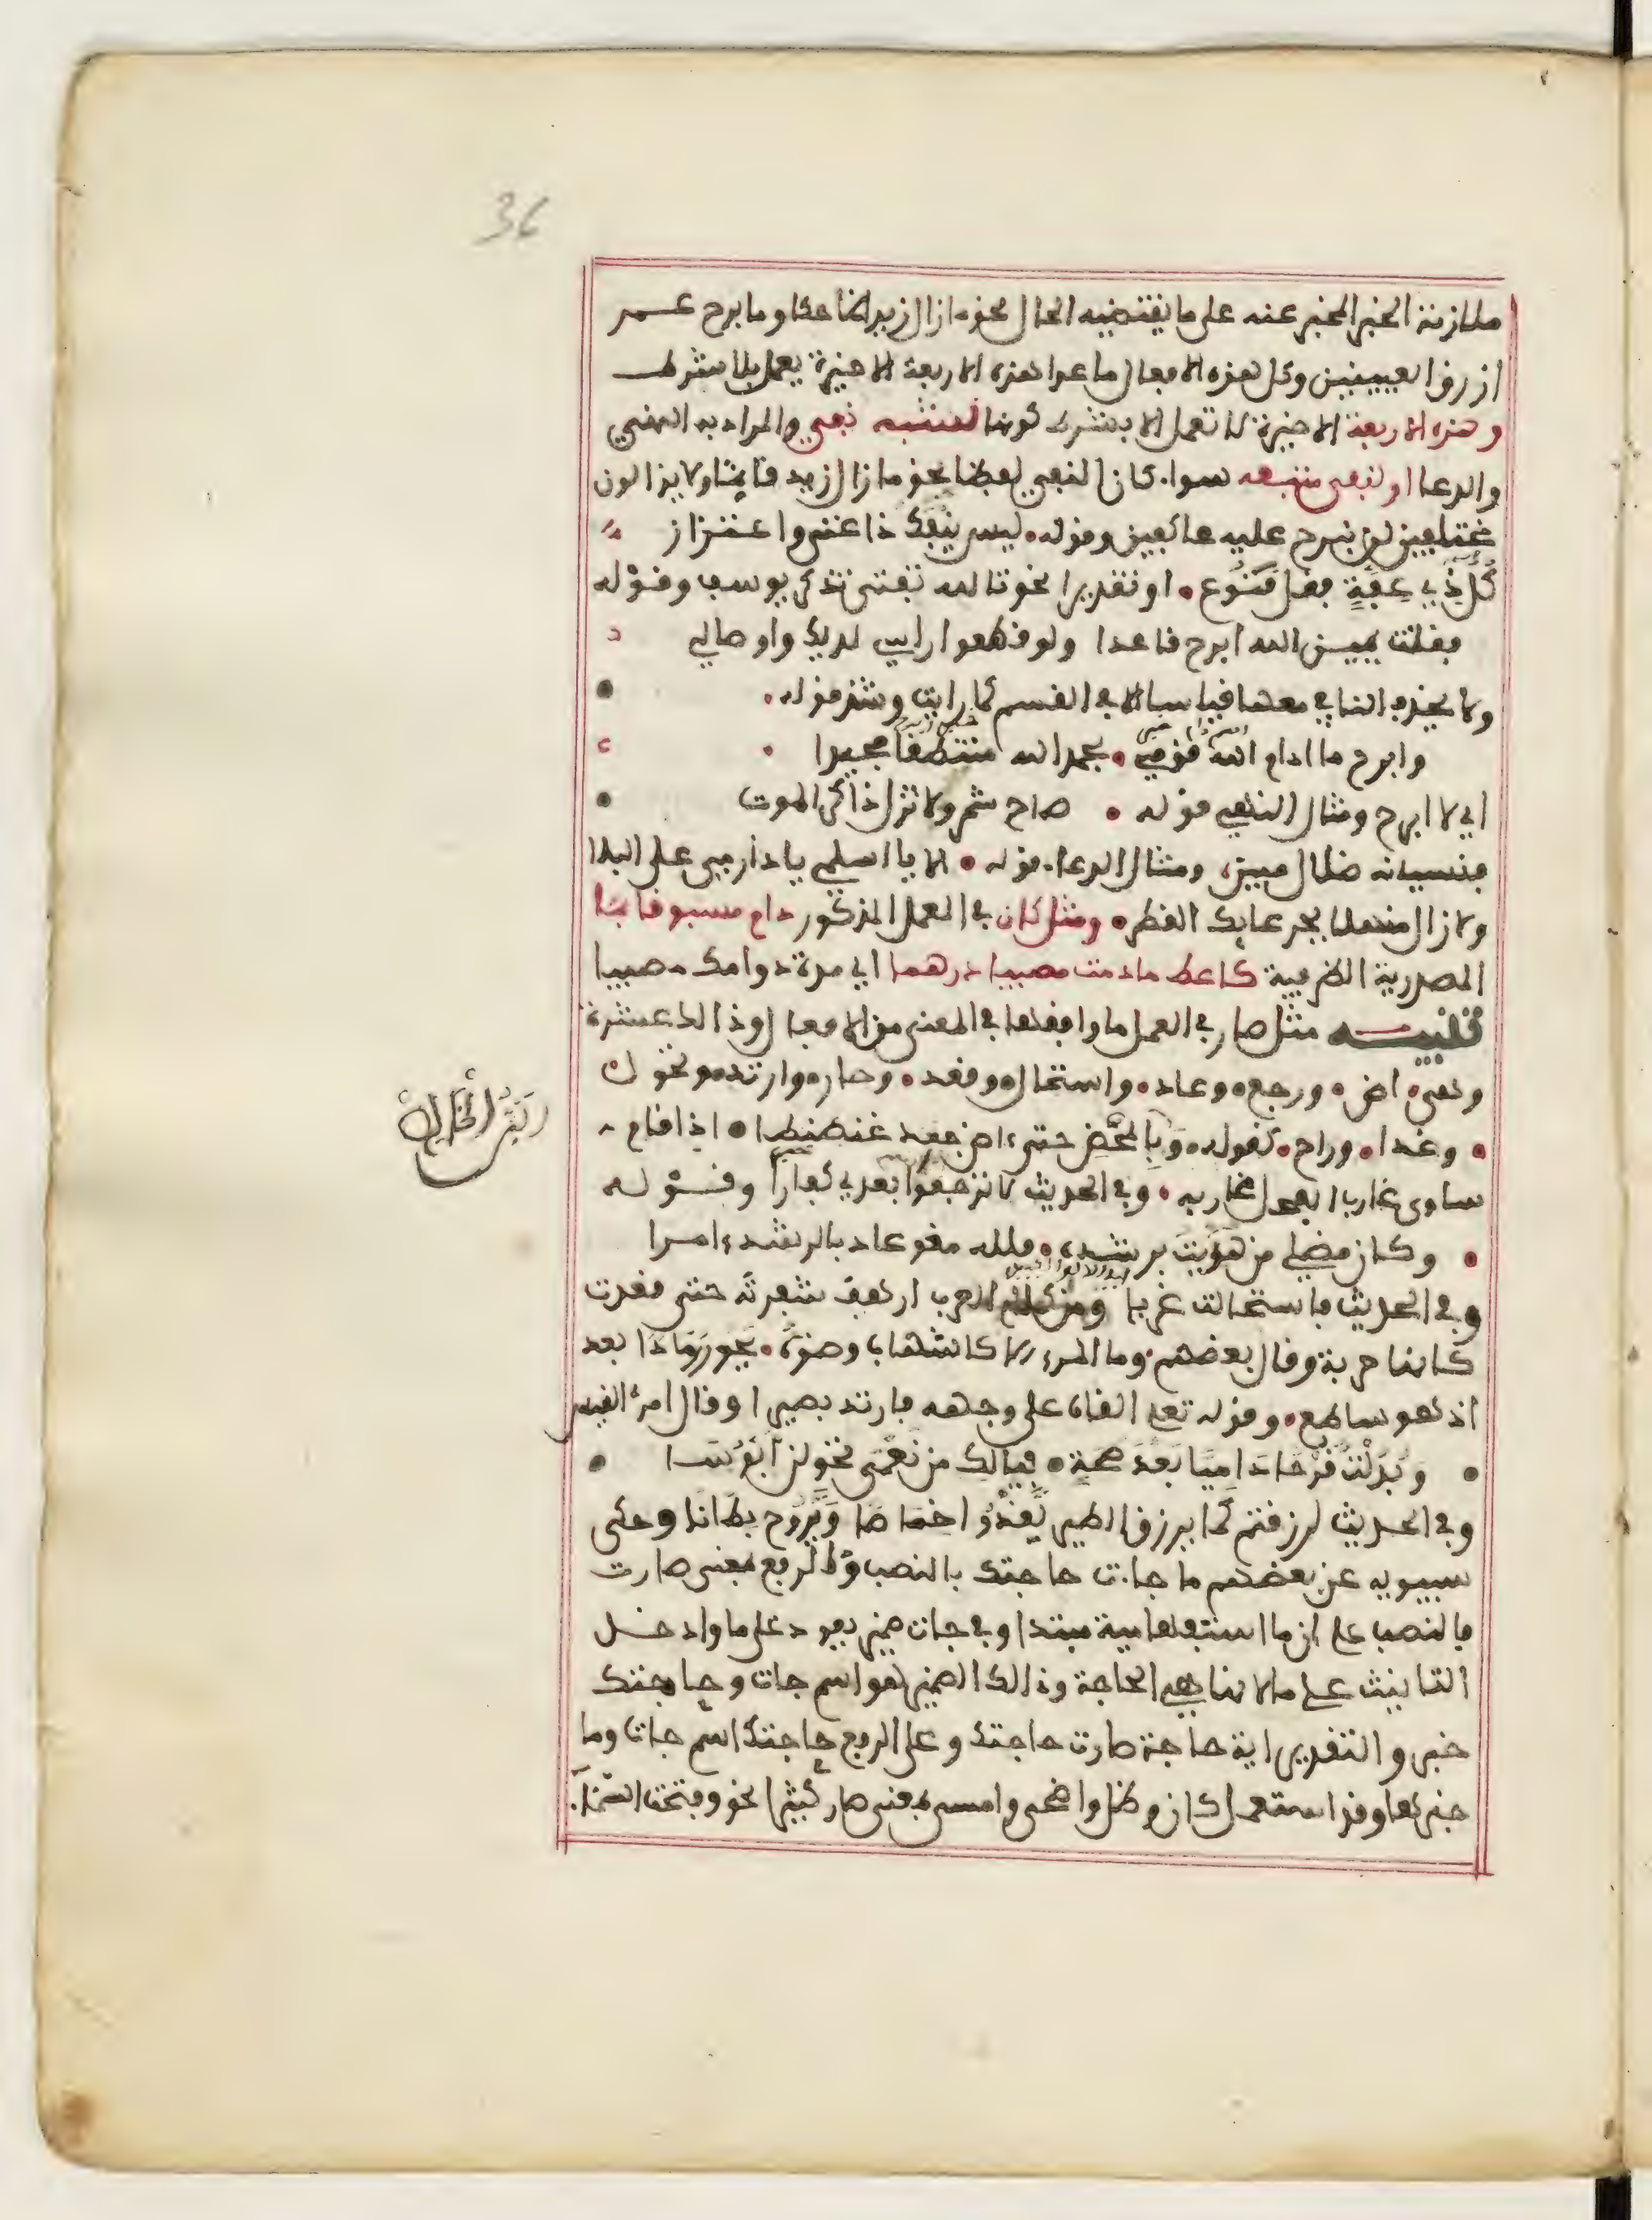 36
ملازمة الخبر المخبر عنه على ما يقتضيه الحال نحو ما زال زيد ضاحكا وما برح عمر
ازرق العينين وكل هذه الافعال ما عدا هذه الاربعة الاخيرة يعمل بلا شرط
وهذه الاربعة الاخيرة لا تعمل الا بشرط كونها لشبه نفي والمراد به النهي
والدعا او لنفي متبعه سوا كان النفي لفظا نحو ما زال زيد قائما ولا يزالون
مختلفين لن نبرح عليه عاكفين وقوله ليس ينفك ذا غنى واعتزاز
كل ذي عفة مقل قنوع او تقديرا نحو تالله تفتى تذكر يوسف وقوله
فقلت يمين الله ابرح قاعدا ولو قطعوا راسي لديك واوصالي
ولا يحذف النافي معها قياسا الا في القسم كما رايت وشذ قوله
وابرح ما ادام الله قومي بحمد الله منتطقا مجيدا
اي لا ابرح ومثال النهي قوله صاح شمر ولا تزل ذاكر الموت
فنسيانه ضلال مبين ومثال الدعا قوله الا يا اسلمي يا دار مي على البلا
ولا زال منهلا بجرعايك القطر ومثل كان في العمل المذكور دام مسبوقا بما
المصدرية الظرفية كاعط ما دمت مصيبا درهما اي مدة دوامك مصيبا
تنبيه مثل صار في العمل ما وافقها في المعنى من الافعال وذالك عشرة
وهي اض ورجع وعاد واستحال وقعد وحار وارتد وتحول
وغدا وراح كقوله وبالمخض حتى اض جعدا عنطنطا اذا قام
ساوى غارب الفحل غاربه وفي الحديث لا ترجعوا بعدي كفارا وقوله
وكان مضلي من هديت برشده فلله مغو عاد بالرشد امرا
وفي الحديث فاستحالت غربا ومن كلام العرب ارهف شفرته حتى قعدت
كانها حربة وقال بعضهم وما المرء الا كالشهاب وضوئه يحور رمادا بعد
اذ هو ساطع وقوله تعلى القاه على وجهه فارتد بصيرا وقال امرئ القيس
وبدلت قرحا داميا بعد صحة فيالك من نعمى تحولن ابؤسا
وفي الحديث لرزقتم كما يرزق الطير يغدوا خماصا ويروح بطانا وحكى
سيبويه عن بعضهم ما جاءت حاجتك بالنصب والرفع بمعنى صارت
فالنصب على ان ما استفهامية مبتدا وفي جات ضمير يعود على ما وادخل
التانيث على ما لانها هي الحاجة وذالك الضمير هو اسم جات وحاجتك
خبر والتقدير اية حاجة صارت حاجتك وعلى الرفع حاجتك اسم جات وما
خبرها وقد استعمل كان وظل واضحى وامسى بمعنى صار كثيرا نحو وفتحت السماء